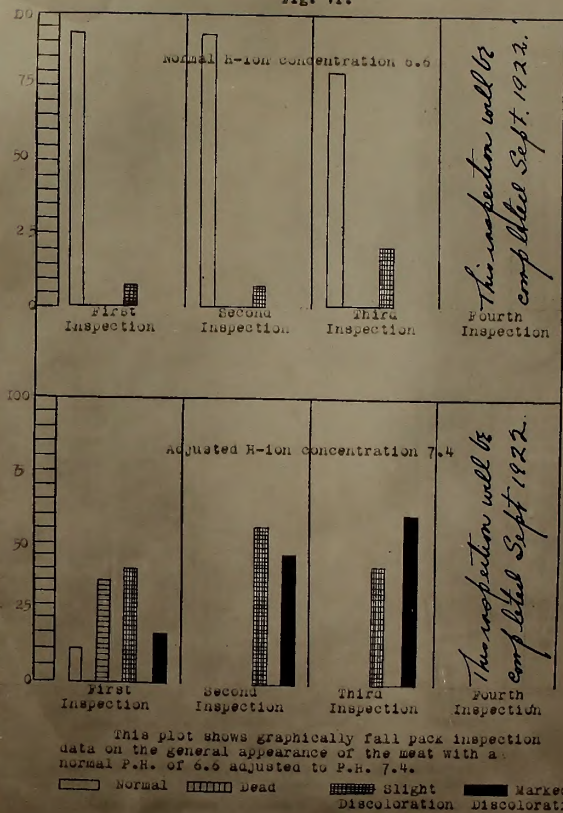 Fig. VI.
Normal H-ion concentration 6.6
00
75
50
25
0
First
Inspection
Second
Inspection
Third
Inspection
Fourth
Inspection
This inspection will be
completed Sept. 1922.
Adjusted H-ion concentration 7.4
100
75
50
25
0
First
Inspection
Second
Inspection
Third
Inspection
Fourth
Inspection
This inspection will be
completed Sept 1922.
This plot shows graphically fall pack inspection
data on the general appearance of the meat with a
normal P.H. of 6.6 adjusted to P.H. 7.4.
Normal Dead Slight Marke
Discoloration Discolorati